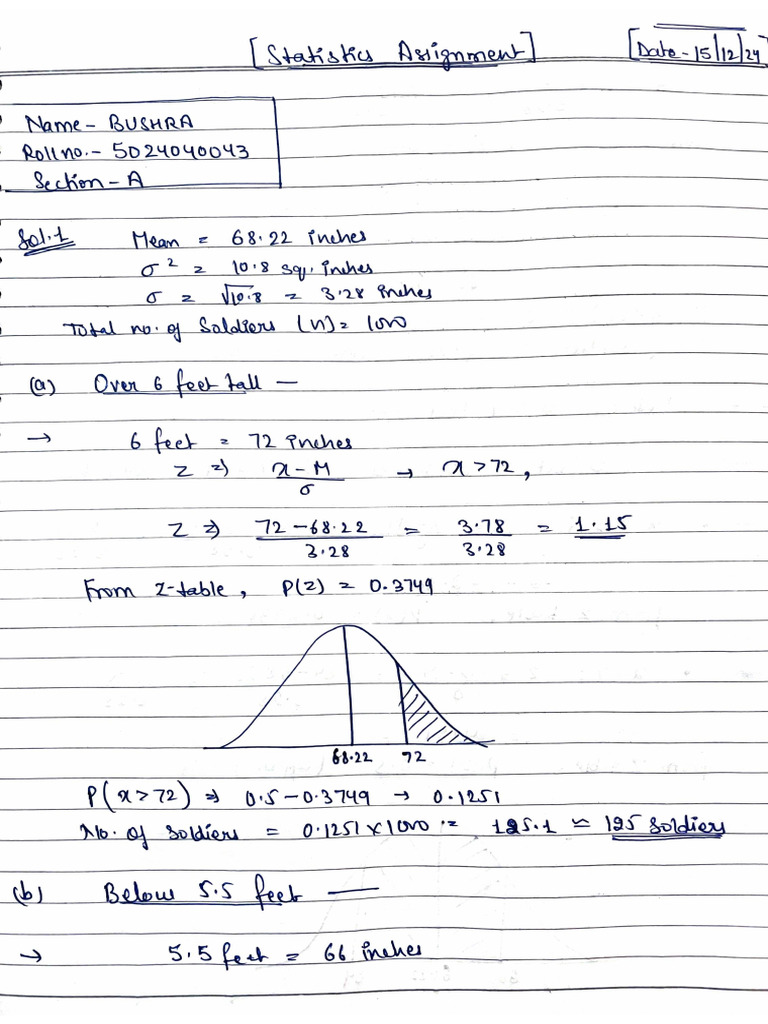 [Statistics Assignment]
[Date - 15/12/24]
Name - BUSHRA
Roll no. - 5024040043
Section - A
Sol.1 Mean = 68.22 inches
σ² = 10.8 sq. inches
σ = √10.8 = 3.28 inches
Total no. of Soldiers (n) = 1000
(a) Over 6 feet tall —
→ 6 feet = 72 inches
Z ⇒ x - M / σ → x > 72,
Z ⇒ 72 - 68.22 / 3.28 = 3.78 / 3.28 = 1.15
From Z-table, P(z) = 0.3749
68.22 72
P(x > 72) ⇒ 0.5 - 0.3749 → 0.1251
No. of Soldiers = 0.1251 × 1000 = 125.1 ≃ 125 Soldiers
(b) Below 5.5 feet —
→ 5.5 feet = 66 inches